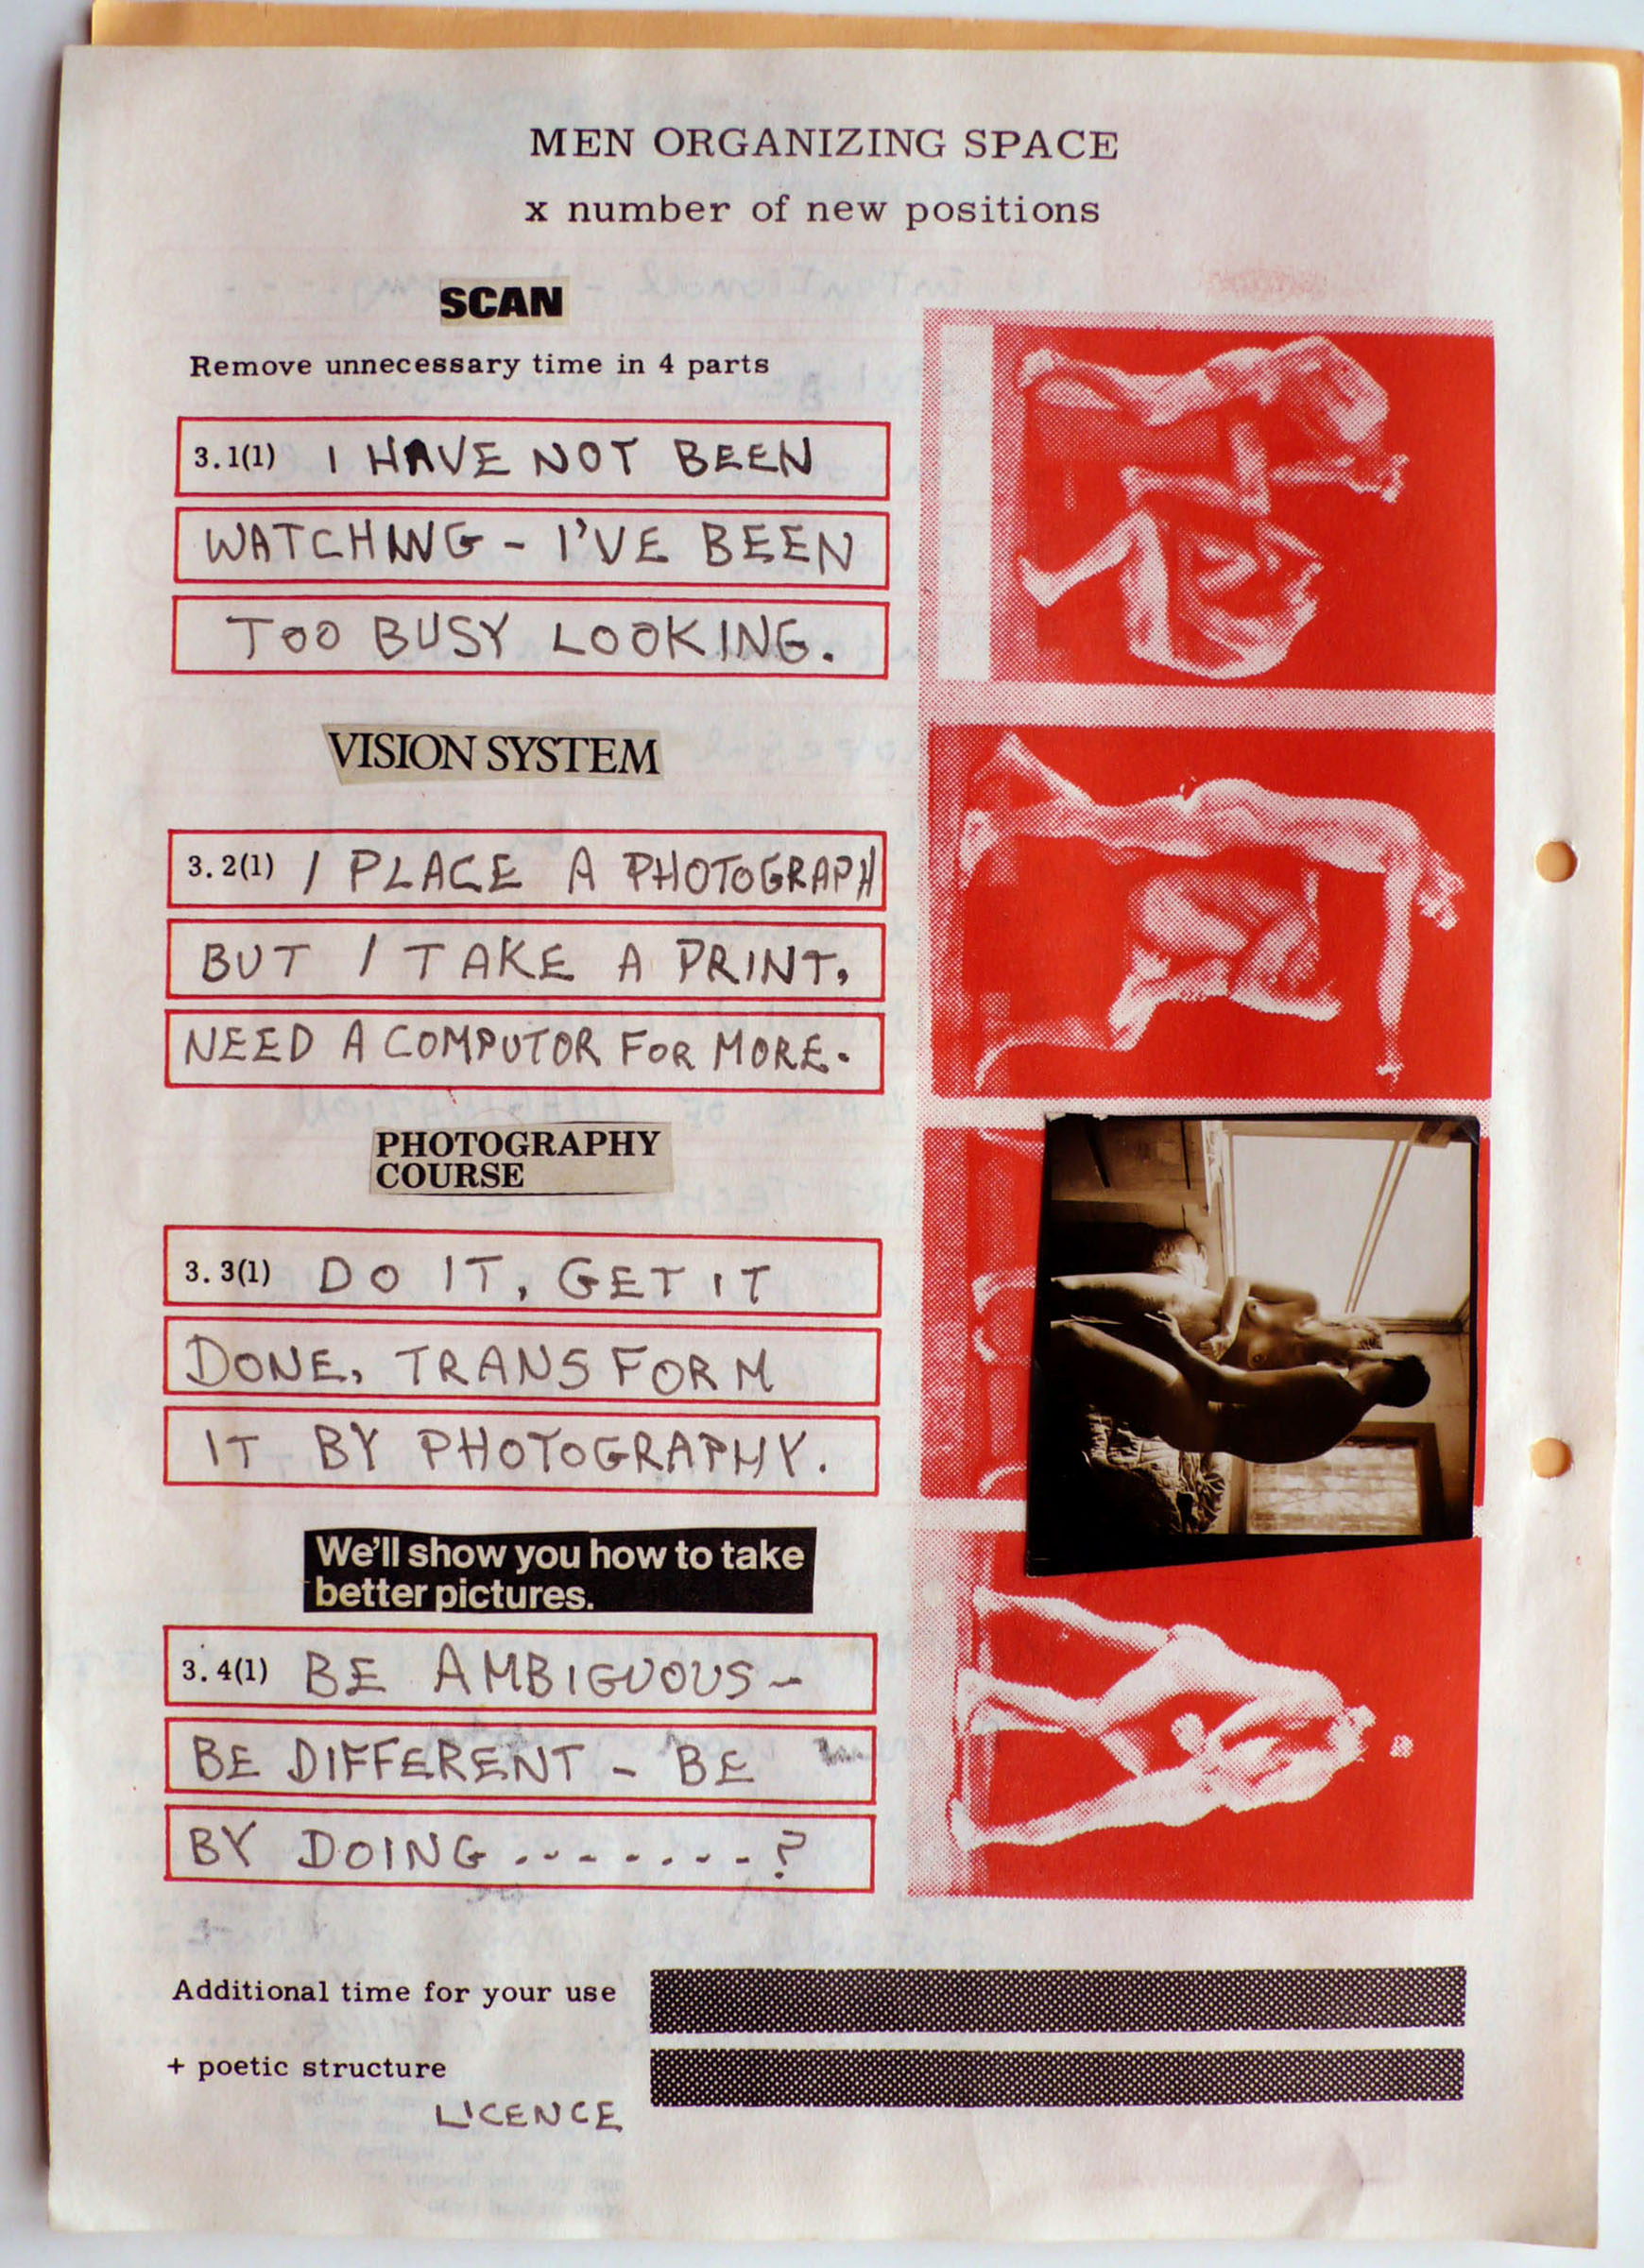 MEN ORGANIZING SPACE
x number of new positions
SCAN
Remove unnecessary time in 4 parts
3.1(1) I HAVE NOT BEEN
WATCHING - I'VE BEEN
TOO BUSY LOOKING.
VISION SYSTEM
3.2(1) I PLACE A PHOTOGRAPH
BUT I TAKE A PRINT,
NEED A COMPUTOR FOR MORE.
PHOTOGRAPHY
COURSE
3.3(1) DO IT, GET IT
DONE, TRANSFORM
IT BY PHOTOGRAPHY.
We'll show you how to take
better pictures.
3.4(1) BE AMBIGUOUS -
BE DIFFERENT - BE
BY DOING ........?
Additional time for your use
+ poetic structure
LICENCE